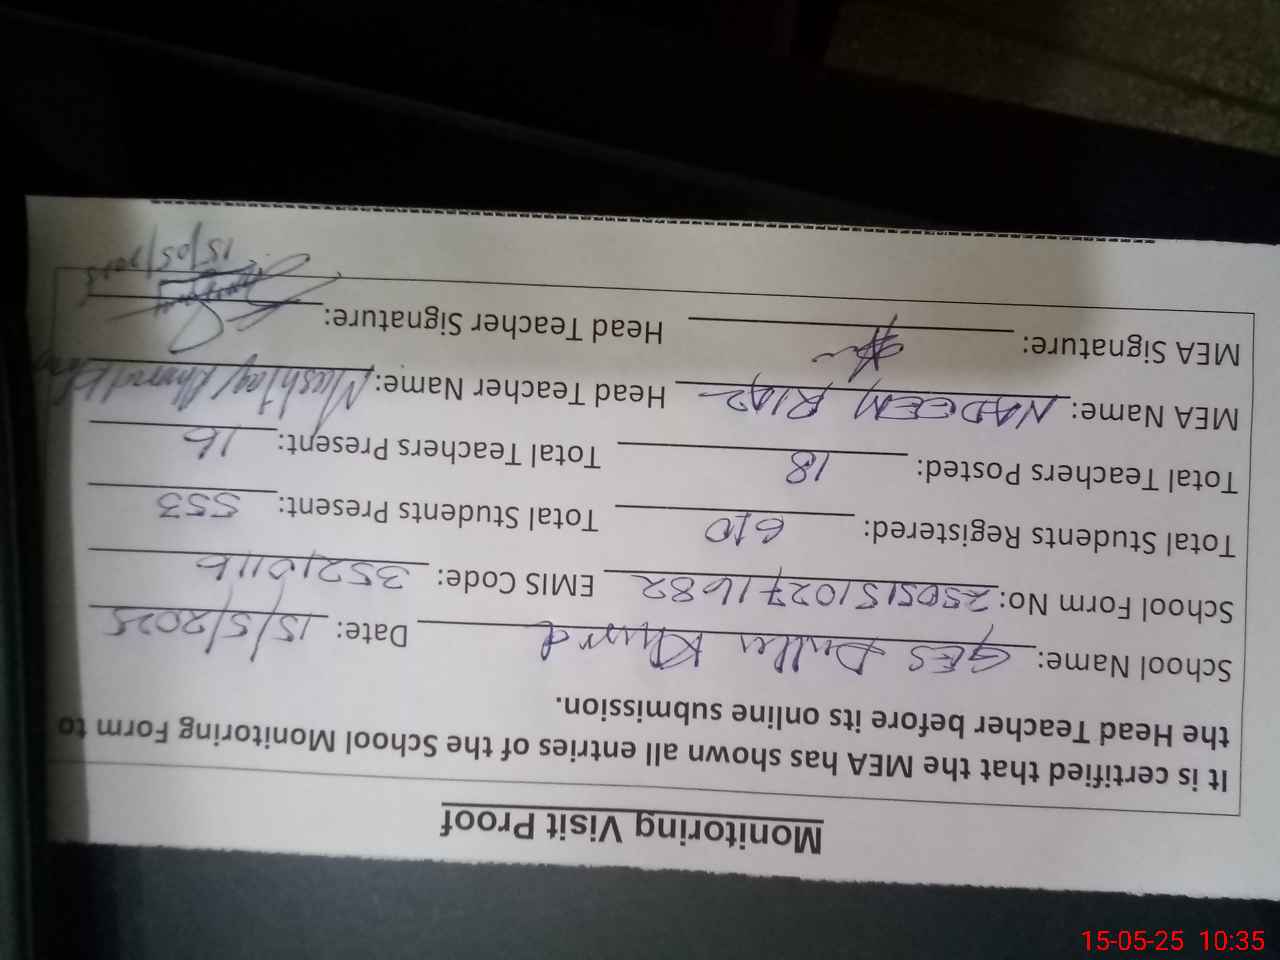 Monitoring Visit Proof
It is certified that the MEA has shown all entries of the School Monitoring Form to
the Head Teacher before its online submission.
School Name: GES Duller Khurd Date: 15/5/2025
School Form No: 2505151027 11682 EMIS Code: 35210116
Total Students Registered: 610 Total Students Present: 553
Total Teachers Posted: 18 Total Teachers Present: 16
MEA Name: NADEEM RIAZ Head Teacher Name: Mushtaq Ahmed
MEA Signature: Head Teacher Signature:
15/05/2025
15-05-25 10:35